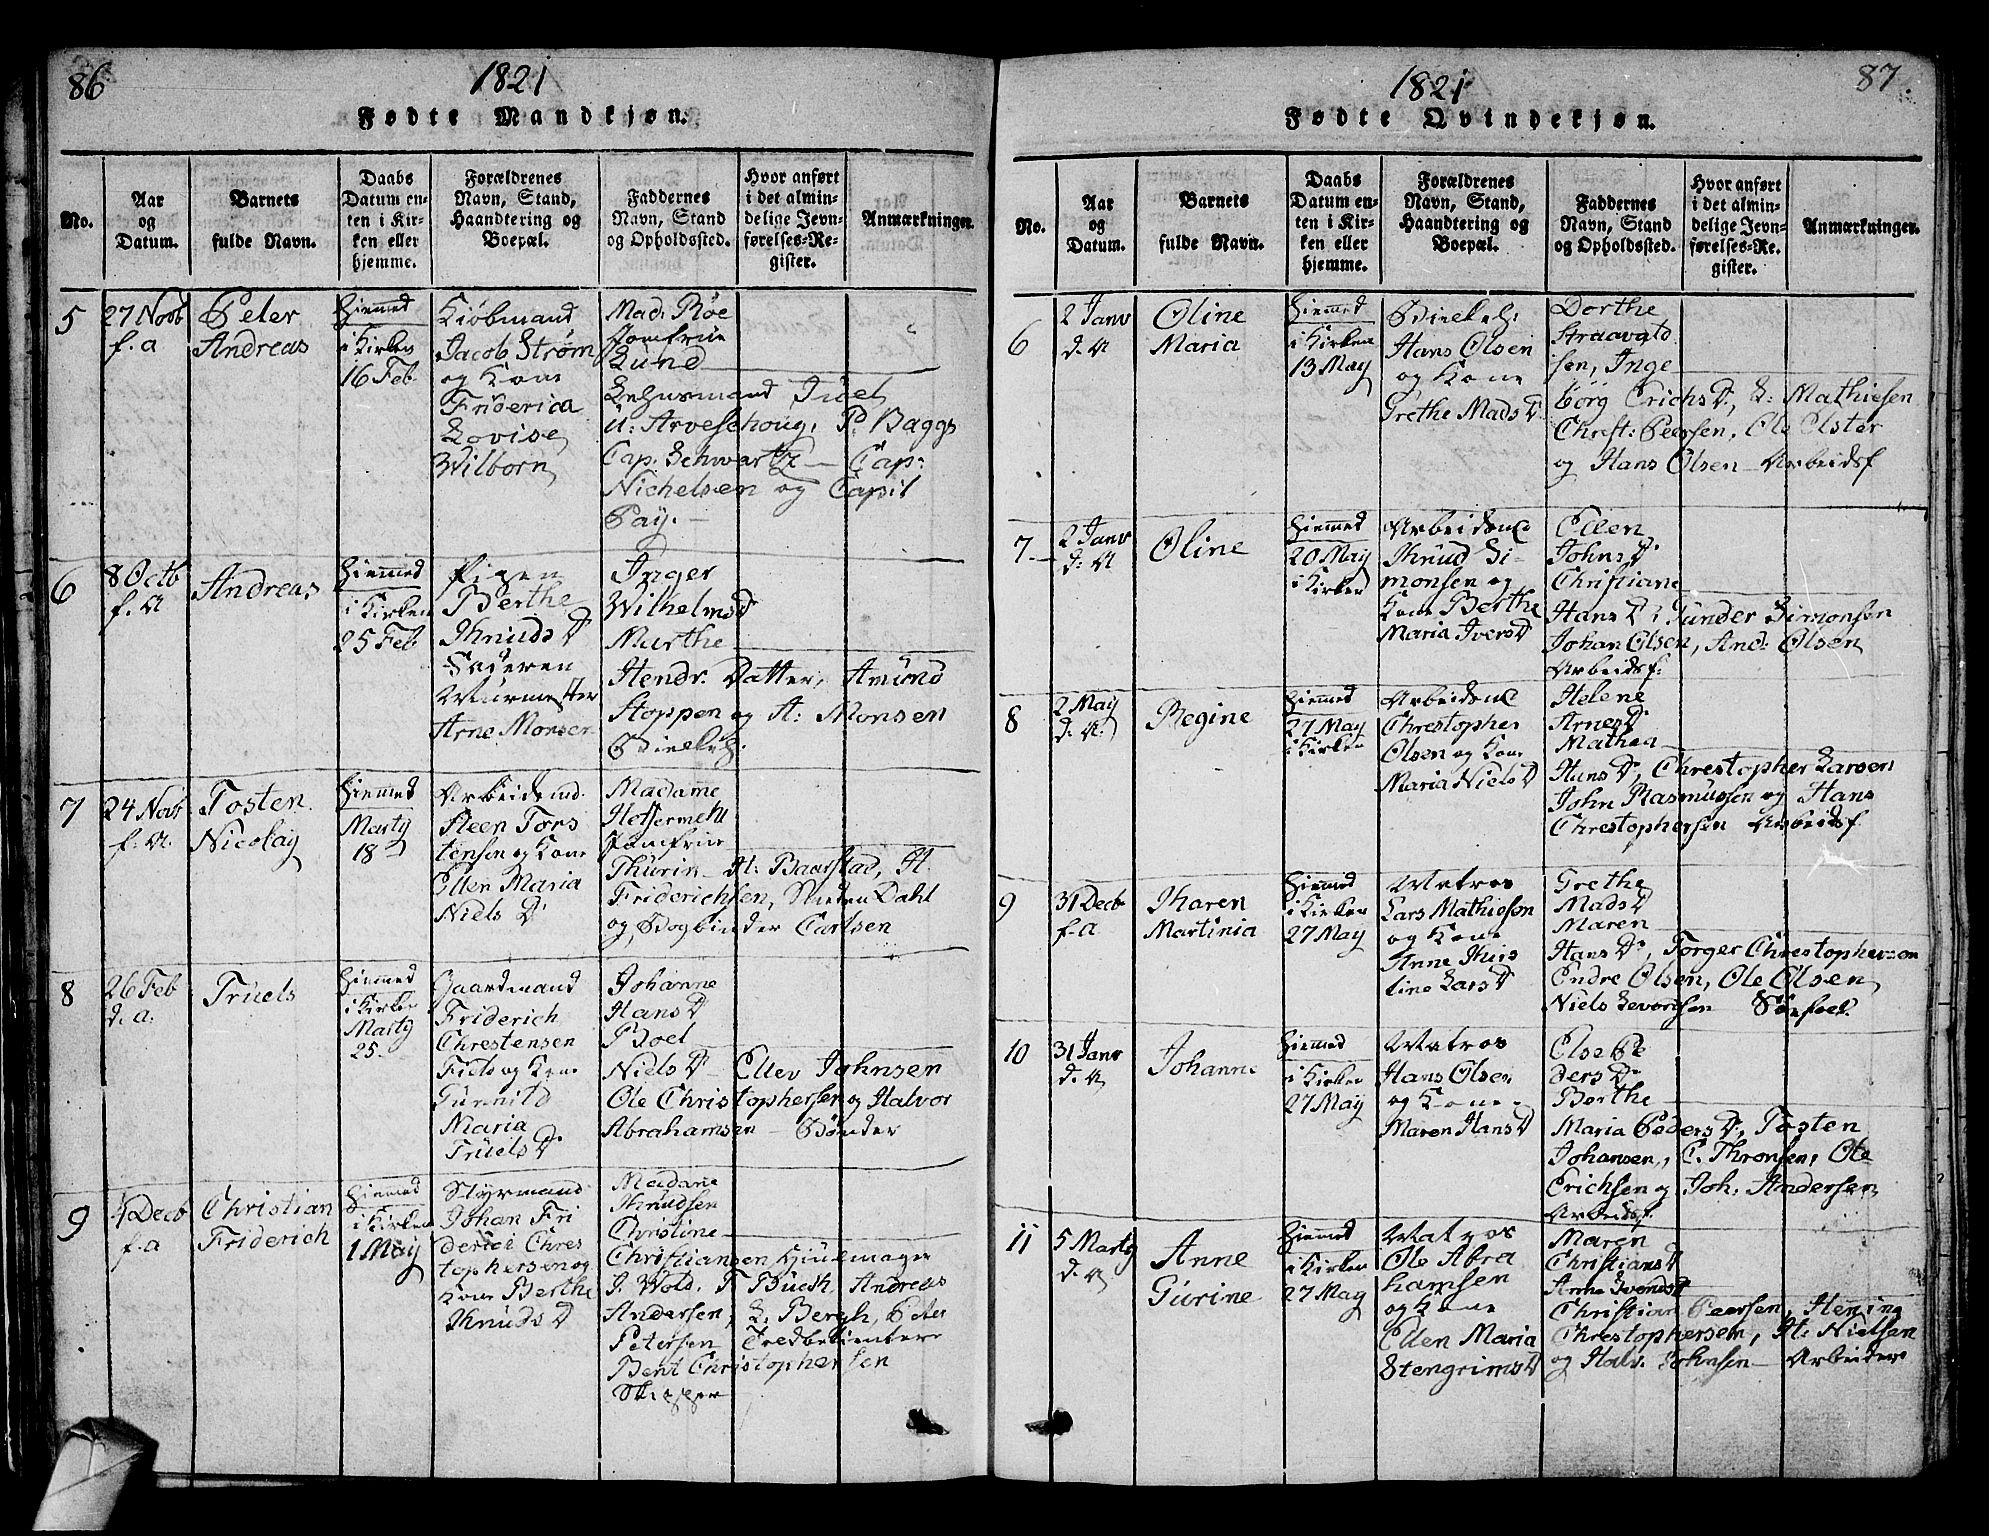 86
1821
Fødte Mandkjøn.
No.
Aar
og
Datum.
Barnets
fulde Navn.
Daabs
Datum en-
ten i Kir-
ken eller
hjemme.
Forældrenes
Navn, Stand,
Haandtering og
Boepæl.
Faddernes
Navn, Stand
og Opholdssted.
Hvor anført
i det almin-
delige Jevn-
førelses-Re-
gister.
Anmærkninger.
5
27 Novb
f. a
Peter
Andreas
Hiemmed
i Kirken
16 Feb
Kiøbmand
Jacob Strøm
og Kone
Friderica
Lovise
Wilborn
Mad. Røe
Jomfrue
Lund
Lehnsmand Juel
u: Arveschoug, P. Baggs
Cap. Schwartz — Cap:
Nichelsen og Capit
Pay. —
6
8 Octb
f. A
Andreas
Hiemmed
i Kirken
25 Feb
Pigen
Berthe
Knuds D
Murmester
Arne Monsen
Inger
Wilhelmsd
Marthe
Hendr. Datter, Amund
Stoppen og A: Monsen
7
24 Novb
f. A.
Tosten
Nicolay
Hiemmed
Marty
18
Arbeidsmd.
Steen Tors
tensen og Kone
Ellen Maria
Niels D
Madame
Jomfrue
Thurin — H: Baarstad, H.
Friderichsen, Dahl
og Bogbinder Carlsen
8
26 Feb
d. a.
Truels
Hiemmed
i Kirken
Marty
25.
Gaardmand
Friderich
Chrestensen
og Kone
Gurenild
Maria
Truels D
Johanne
Hans D
Boel
Niels D — Ellev Johnsen
Ole Christophersen og Halvor
Abrahamsen — Bønder
9
4 Decb
f. a
Christian
Friderich
Hiemmed
i Kirken
1 May
Styrmand
Johan Fri
derici Chres
tophersen og
Kone Berthe
Knuds D
Madame
Knudsen
Christine
Christiansen Hjulmager
J. Wold, F Buch, Andreas
Andersen, L. Bergh, Peter
Petersen
Bent Christophersen
Skipper
1821
87.
Fødte Qvindekjøn.
No.
Aar
og
Datum.
Barnets
fulde Navn.
Daabs
Datum en-
ten i Kir-
ken eller
hjemme.
Forældrenes
Navn, Stand,
Haandtering og
Boepæl.
Faddernes
Navn, Stand
og Opholdssted.
Hvor anført
i det almin-
delige Jevn-
førelses-Re-
gister.
Anmærkninger.
6
2 Janv
d. A
Oline
Maria
Hiemmed
i Kirken
13 May
Hans Olsen
og Kone
Grethe Mads D
Dorthe
sen, Inge
borg Erichs D, L: Mathiesen
Christ: Peersen, Ole Olster
og Hans Olsen — Arbeidsf
7
2 Janv
d: A
Oline
Hiemmed
20 May
i Kirken
Arbeidsmd
Knud Si-
monsen og
Kone Berthe
Maria Ivers D
Ellen
Johns D
Christiane
Hans D; Gunder Simonsen
Johan Olsen, And: Olsen
Arbeidsf:
8
2 May
d. A.
Regine
Hiemmed
27 May
i Kirken
Arbeidsmd
Chrestopher
Olsen og Kone
Maria Niels D
Helene
Arnes D
Mathea
Hans D, Chrestopher Larsen
John Rasmussen og Hans
Chrestophersen Arbeidsf
9
31 Decb
f. a
Karen
Martinia
Hiemmed
i Kirken
27 May
Matros
Lars Mathiesen
og Kone
Anne Kirs
tine Lars D
Grethe
Mads D
Maren
Hans D, Torger Chrestophersen
Endre Olsen, Ole Olsen
Niels Sevordsen Søefoel.
10
31 Janv
d. A
Johanne
Hiemmed
i Kirken
27 May
Matros
Hans Olsen
og Kone
Maren Hans D
Else Pe
ders D
Berthe
Maria Peders D, Tosten
Johansen, C. Thronsen, Ole
Erichsen og Joh. Andersen
Arbeidsf.
11
5 Marty
d. A
Anne
Gurine
Hiemmed
i Kirken
27 May
Matros
Ole Abra
hamsen
og Kone
Ellen Maria
Stengrims D
Maren
Christians D
Anne Svends D
Christian Peersen, Hening
Chrestophersen, H: Nielsen
og Halv. Johnsen — Arbeider